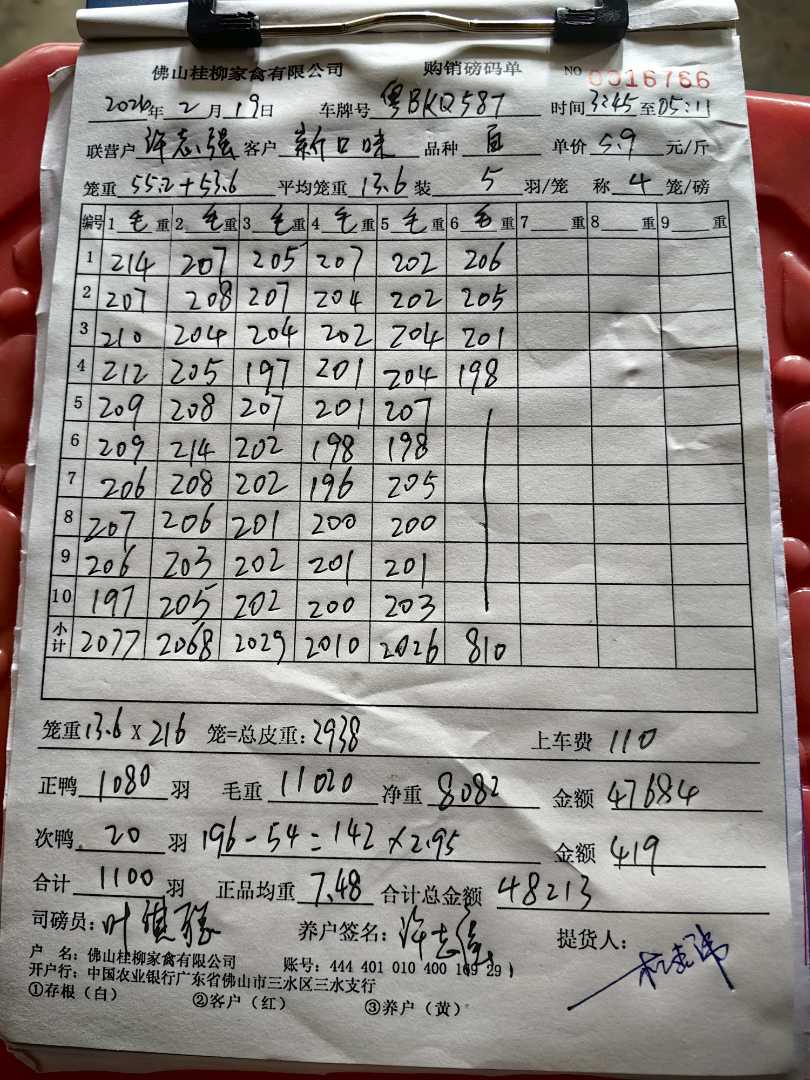 佛山桂柳家禽有限公司 购销磅码单 NO 0016766
2026年2月19日 车牌号 粤BKQ587 时间 3:45 至 05:11
联营户 许志强 客户 新口味 品种 单价 5.9 元/斤
笼重 55.2+53.6 平均笼重 13.6 装 5 羽/笼 称 4 笼/磅
编号 1 毛 重 2 毛 重 3 毛 重 4 毛 重 5 毛 重 6 毛 重 7 重 8 重 9 重
1 214 207 205 207 202 206
2 207 208 207 204 202 205
3 210 204 204 202 204 201
4 212 205 197 201 204 198
5 209 208 207 201 207
6 209 214 202 198 198
7 206 208 202 196 205
8 207 206 201 200 200
9 206 203 202 201 201
10 197 205 202 200 203
小计 2077 2068 2029 2010 2026 810
笼重 13.6 X 216 笼=总皮重: 2938 上车费 110
正鸭 1080 羽 毛重 11020 净重 8082 金额 47684
次鸭 20 羽 196-54=142×2.95 金额 419
合计 1100 羽 正品均重 7.48 合计总金额 48213
司磅员: 养户签名: 许志强 提货人:
户 名: 佛山桂柳家禽有限公司 账号: 444 401 010 400 169 291
开户行: 中国农业银行广东省佛山市三水区三水支行
①存根（白） ②客户（红） ③养户（黄）